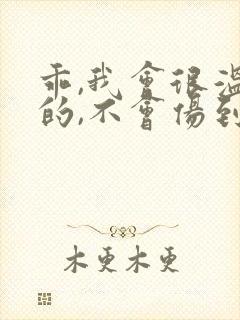 乖,我會很溫
的,不會傷到
木更木更